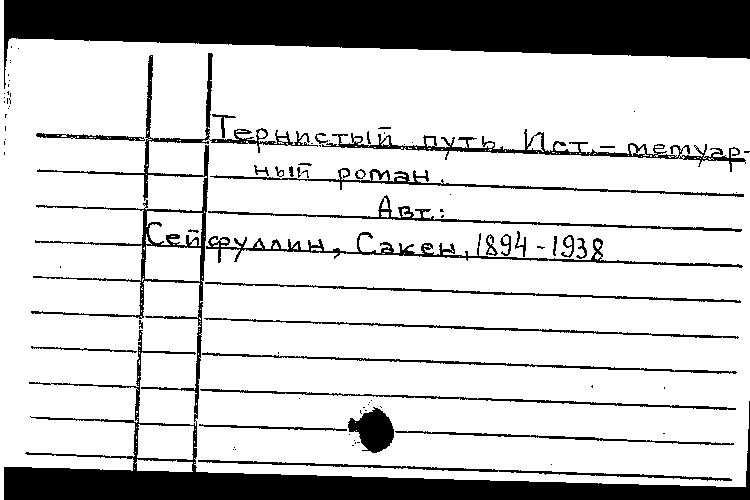 Тернистый путь. Ист.-мемуар-
ный роман.
Авт.:
Сейфуллин, Сакен, 1894-1938